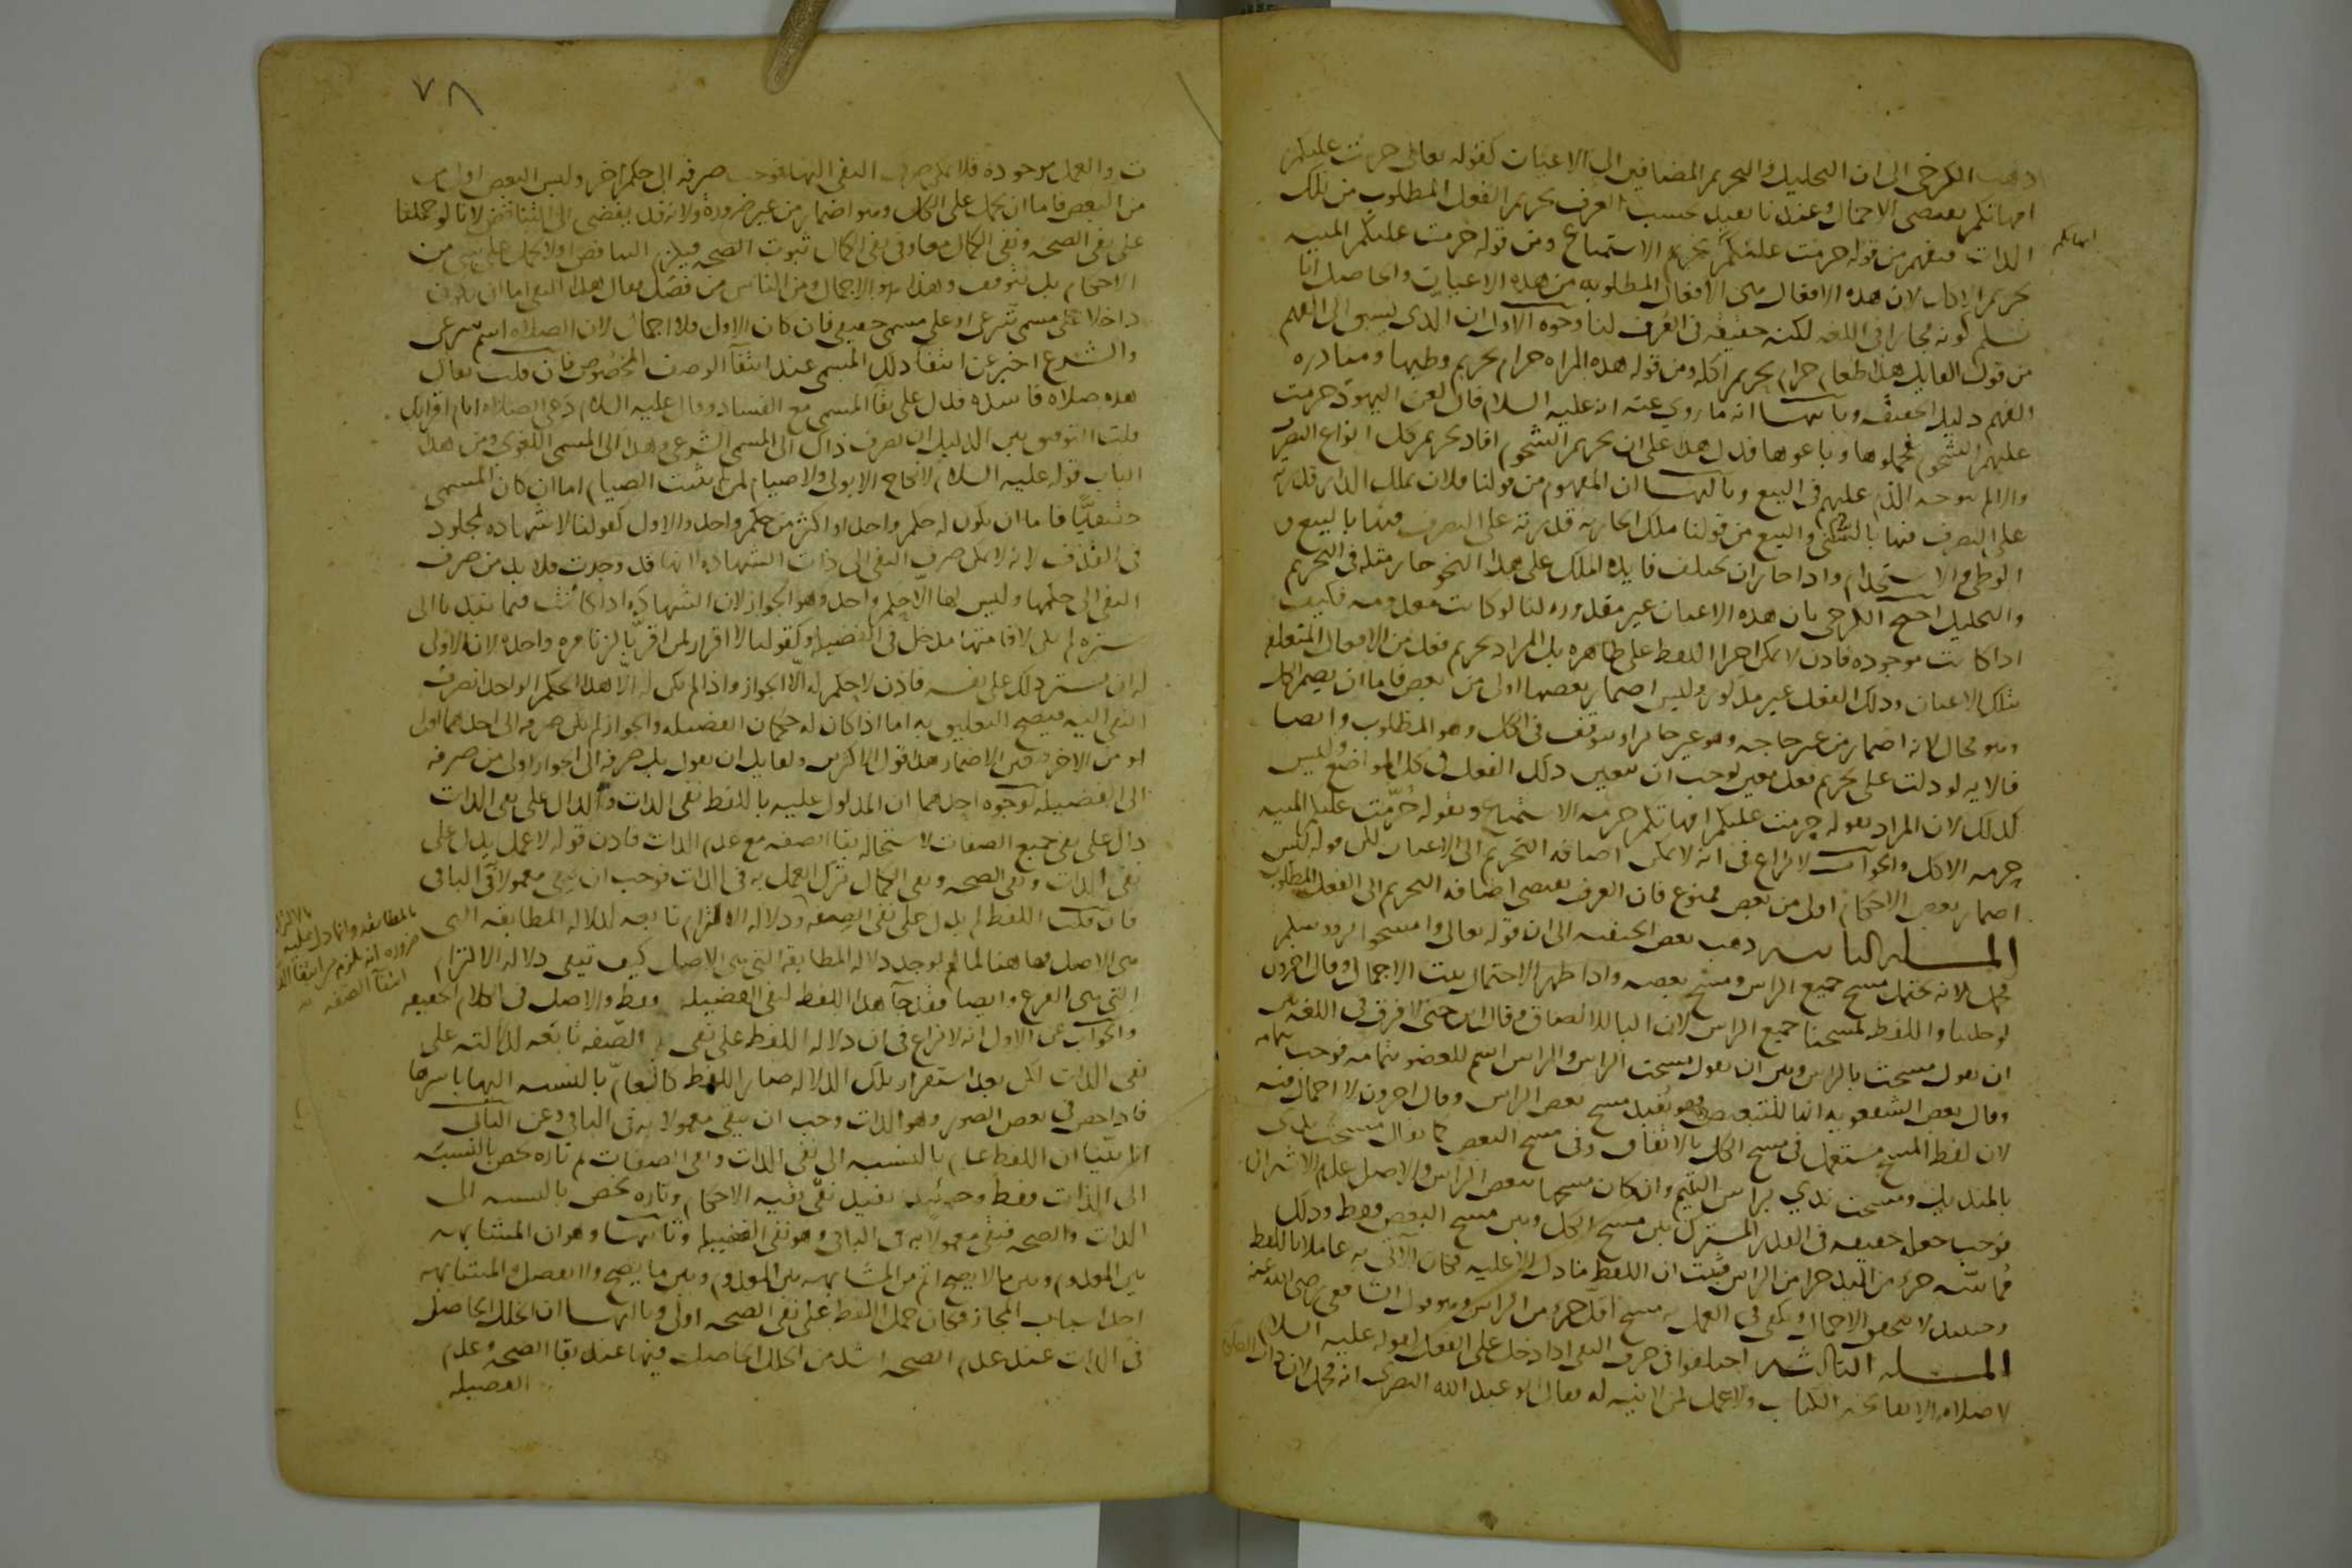 ذهب الكرخي الى ان التحليل والتحريم المضافين الى الاعيان كقوله تعالى حرمت عليكم
امهاتكم يقتضي الاجمال وعندنا يفيد بحسب العرف تحريم الفعل المطلوب من تلك
امهاتكم
الذات فيفهم من قوله حرمت عليكم تحريم الاستمتاع ومن قوله حرمت عليكم الميتة
تحريم الاكل لان هذه الافعال هي الافعال المطلوبه من هذه الاعيان والحاصل انا
نسلم كونه مجازا في اللغه لكنه حقيقه في العرف لنا وجوه الاول ان الذي يسبق الى الفهم
من قول القايل هذا طعام حرام تحريم اكله ومن قوله هذه المراه حرام تحريم وطيها ومبادره
الفهم دليل الحقيقه وثانيها انه ما روي عنه انه عليه السلام قال لعن اليهود حرمت
عليهم الشحوم فجملوها وباعوها فدل هذا على ان تحريم الشحوم افاد تحريم كل انواع التصرف
والا لم يتوجه الذم عليهم في البيع وثالثها ان المفهوم من قولنا فلان يملك الدار قدرته
على التصرف فيها بالسكنى والبيع من قولنا ملك الجاريه قدرته على التصرف فيها بالبيع و
الوطي والاستخدام واذا جاز ان تختلف فايده الملك على هذا النحو جاز مثله في التحريم
والتحليل احتج الكرخي بان هذه الاعيان غير مقدوره لنا لو كانت معدومه فكيف
اذا كانت موجوده فاذن لا يمكن اجرا اللفظ على ظاهره بل المراد تحريم فعل من الافعال المتعلقه
بتلك الاعيان وذلك الفعل غير مذكور وليس اضمار بعضها اولى من بعض فاما ان يضمر الكل
وهو محال لانه اضمار من غير حاجه وهو غير جايز او يتوقف في الكل وهو المطلوب وايضا
فالايه لو دلت على تحريم فعل معين لوجب ان يتعين ذلك الفعل في كل المواضع وليس
كذلك لان المراد بقوله حرمت عليكم امهاتكم حرمه الاستمتاع وبقوله حرمت عليكم الميته
حرمه الاكل والجواب لا نزاع في انه لا يمكن اضافه التحريم الى الاعيان لكن قوله ليس
اضمار بعض الاحكام اولى من بعض ممنوع فان العرف يقتضي اضافه التحريم الى الفعل المطلوب
المسله الثانيه ذهب بعض الحنفيه الى ان قوله تعالى وامسحوا بروسكم
مجمل لانه يحتمل مسح جميع الراس ومسح بعضه واذا ظهر الاحتمال ثبت الاجمال وقال اخرون
لو خلينا واللفظ لمسحنا جميع الراس لان البا للالصاق وقال ابن جني لا فرق في اللغه بين
ان يقول مسحت بالراس وبين ان يقول مسحت الراس والراس اسم للعضو بتمامه فوجب
وقال بعض الشفعويه انها للتبعيض فهو يفيد مسح بعض الراس وقال اخرون لا اجمال فيه
لان لفظ المسح مستعمل في مسح الكل بالاتفاق وفي مسح البعض كما يقال مسحت يدي
بالمنديل ومسحت يدي براس اليتيم وان كان مسحها ببعض الراس والاصل عدم الاشتراك
فوجب جعله حقيقه في القدر المشترك بين مسح الكل وبين مسح البعض فقط وذلك
مماسه جزء من اليد جزا من الراس فثبت ان اللفظ ما دل الا عليه فكان الآتي به عاملا باللفظ
وحينيذ لا يتحقق الاجمال ويكفي في العمل به مسح اقل جزء من الراس وهو قول الشافعي رضي الله عنه
المسله الثالثه اختلفوا في حرف النفي اذا دخل على الفعل كقوله عليه السلام
لا صلاه الا بفاتحه الكتاب ولا عمل لمن لا نيه له فقال ابو عبد الله البصري انه مجمل لان ذات
٧٨
والعمل موجوده فلا يمكن صرف النفي اليها فوجب صرفه الى حكم اخر وليس البعض اولى
من البعض فاما ان يحمل على الكل وهو اضمار من غير ضروره ولانه قد يفضي الى التناقض لانا لو حملنا
على نفي الصحه ونفي الكمال معا وفي نفي الكمال ثبوت الصحه فيلزم التناقض او لا يحمل على شي من
الاحكام بل يتوقف وهذا هو الاجمال ومن الناس من فصل فقال هذا النفي اما ان يكون
داخلا على مسمى شرعي او على مسمى حقيقي فان كان الاول فلا اجمال لان الصلاه اسم شرعي
والشرع اخبر عن انتفا ذلك المسمى عند انتفا الوصف المخصوص فان قلت يقال
هذه صلاه فاسده فدل على بقا المسمى مع الفساد وقال عليه السلام دعي الصلاه ايام اقرايك
قلت التوفيق بين الدليلين ان يصرف ذاك الى المسمى الشرعي وهذا الى المسمى اللغوي ومن هذا
الباب قوله عليه السلام لا نكاح الا بولي ولا صيام لمن لم يبيت الصيام اما ان كان المسمى
حقيقيا فاما ان يكون له حكم واحد او اكثر من حكم واحد والاول كقولنا لا شهاده لمجلود
في القذف لانه لا يمكن صرف النفي الى ذات الشهاده لانها قد وجدت فلا بد من صرف
النفي الى حكمها وليس لها الا حكم واحد وهو الجواز لان الشهاده اذا كانت فيما يندبنا الى
ستره لم يكن لاقامتها مدخل في الفضيله وكقولنا لا اقرار لمن اقر بالزنا مره واحده لان الاولى
له ان يستر ذلك على نفسه فاذن لا حكم له الا الجواز واذا لم يكن له الا هذا الحكم الواحد انصرف
النفي اليه فيصح التعليق به اما اذا كان له حكمان الفضيله والجواز لم يكن صرفه الى احدهما اولى
من الاخر فتعين الاضمار هذا قول الاكثرين ولقايل ان يقول بل صرفه الى الجواز اولى من صرفه
الى الفضيله لوجوه احدهما ان المدلول عليه باللفظ نفي الذات والدال على نفي الذات
دال على نفي جميع الصفات لاستحاله بقا الصفه مع عدم الذات فاذن قوله لا عمل يدل على
نفي الذات ونفي الصحه ونفي الكمال ترك العمل به في الذات فوجب ان يبقى معمولا في الباقي
فان قلت اللفظ لم يدل على نفي الصفه ودلاله الالتزام تابعه لدلاله المطابقه التي
بالمطابقه وانما دل عليه بالالتزام
ضروره انه يلزم من انتفا الذات
انتفا الصفه
هي الاصل فها هنا لما لم يوجد دلاله المطابقه التي هي الاصل كيف تبقى دلاله الالتزام
التي هي الفرع وايضا فقد جآ هذا اللفظ لنفي الفضيله فقط والاصل في الكلام الحقيقه
والجواب عن الاول انه لا نزاع في ان دلاله اللفظ على نفي الصفه تابعه لدلالته على
نفي الذات لكن بعد استقرار تلك الدلاله صار اللفظ كالعام بالنسبه اليها باسرها
فاذا خص في بعض الصور وهو الذات وجب ان يبقى معمولا به في الباقي وعن الثاني
انا بينا ان اللفظ عام بالنسبه الى نفي الذات ونفي الصفات ثم تاره خص بالنسبه
الى الذات فقط وحينيذ يفيد نفي بقيه الاحكام وتاره يخص بالنسبه الى
الذات والصحه فيبقى معمولا به في الباقي وهو نفي الفضيله وثانيها وهو ان المشابهه
بين المعدوم وبين ما لا يصح اتم من المشابهه بين المعدوم وبين ما يصح ولا يفضل والمشابهه
احد اسباب المجاز فكان حمل اللفظ على نفي الصحه اولى وثالثها ان الخلل الحاصل
في الذات عند عدم الصحه اشد من الخلل الحاصل فيها عند بقا الصحه وعدم
الفضيله